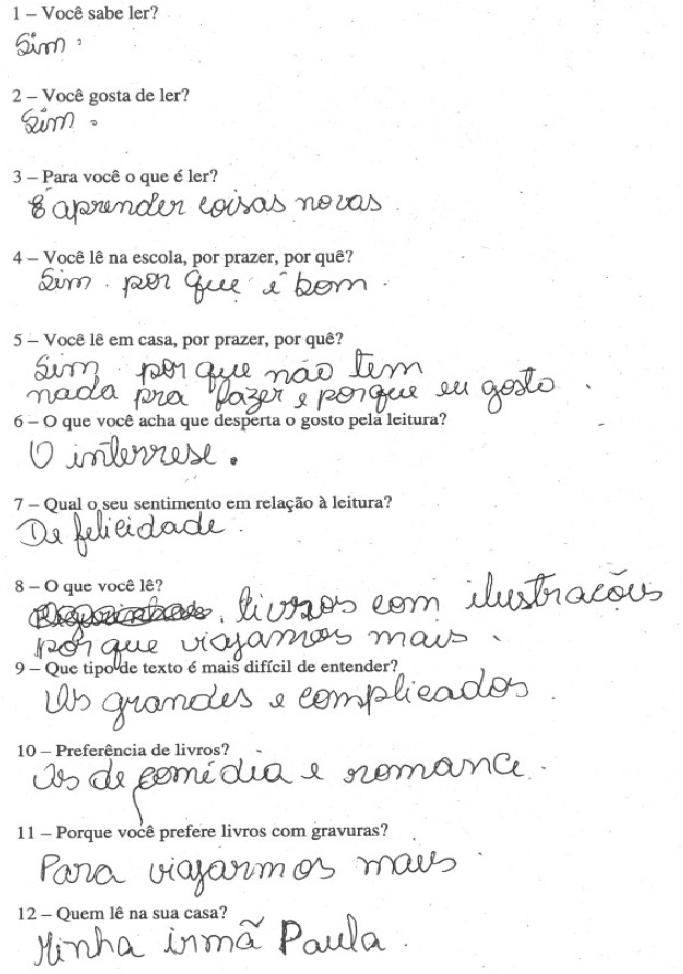 1 – Você sabe ler?
Sim.
2 – Você gosta de ler?
Sim.
3 – Para você o que é ler?
É aprender coisas novas
4 – Você lê na escola, por prazer, por quê?
Sim. por que é bom.
5 – Você lê em casa, por prazer, por quê?
Sim. por que não tem
nada pra fazer e porque eu gosto.
6 – O que você acha que desperta o gosto pela leitura?
O interrese.
7 – Qual o seu sentimento em relação à leitura?
De felicidade.
8 – O que você lê?
livros com ilustracões
por que viajamos mais.
9 – Que tipo de texto é mais difícil de entender?
Us grandes e complicados.
10 – Preferência de livros?
Os de comédia e romance.
11 – Porque você prefere livros com gravuras?
Para viajarmos mais.
12 – Quem lê na sua casa?
Minha irmã Paula.